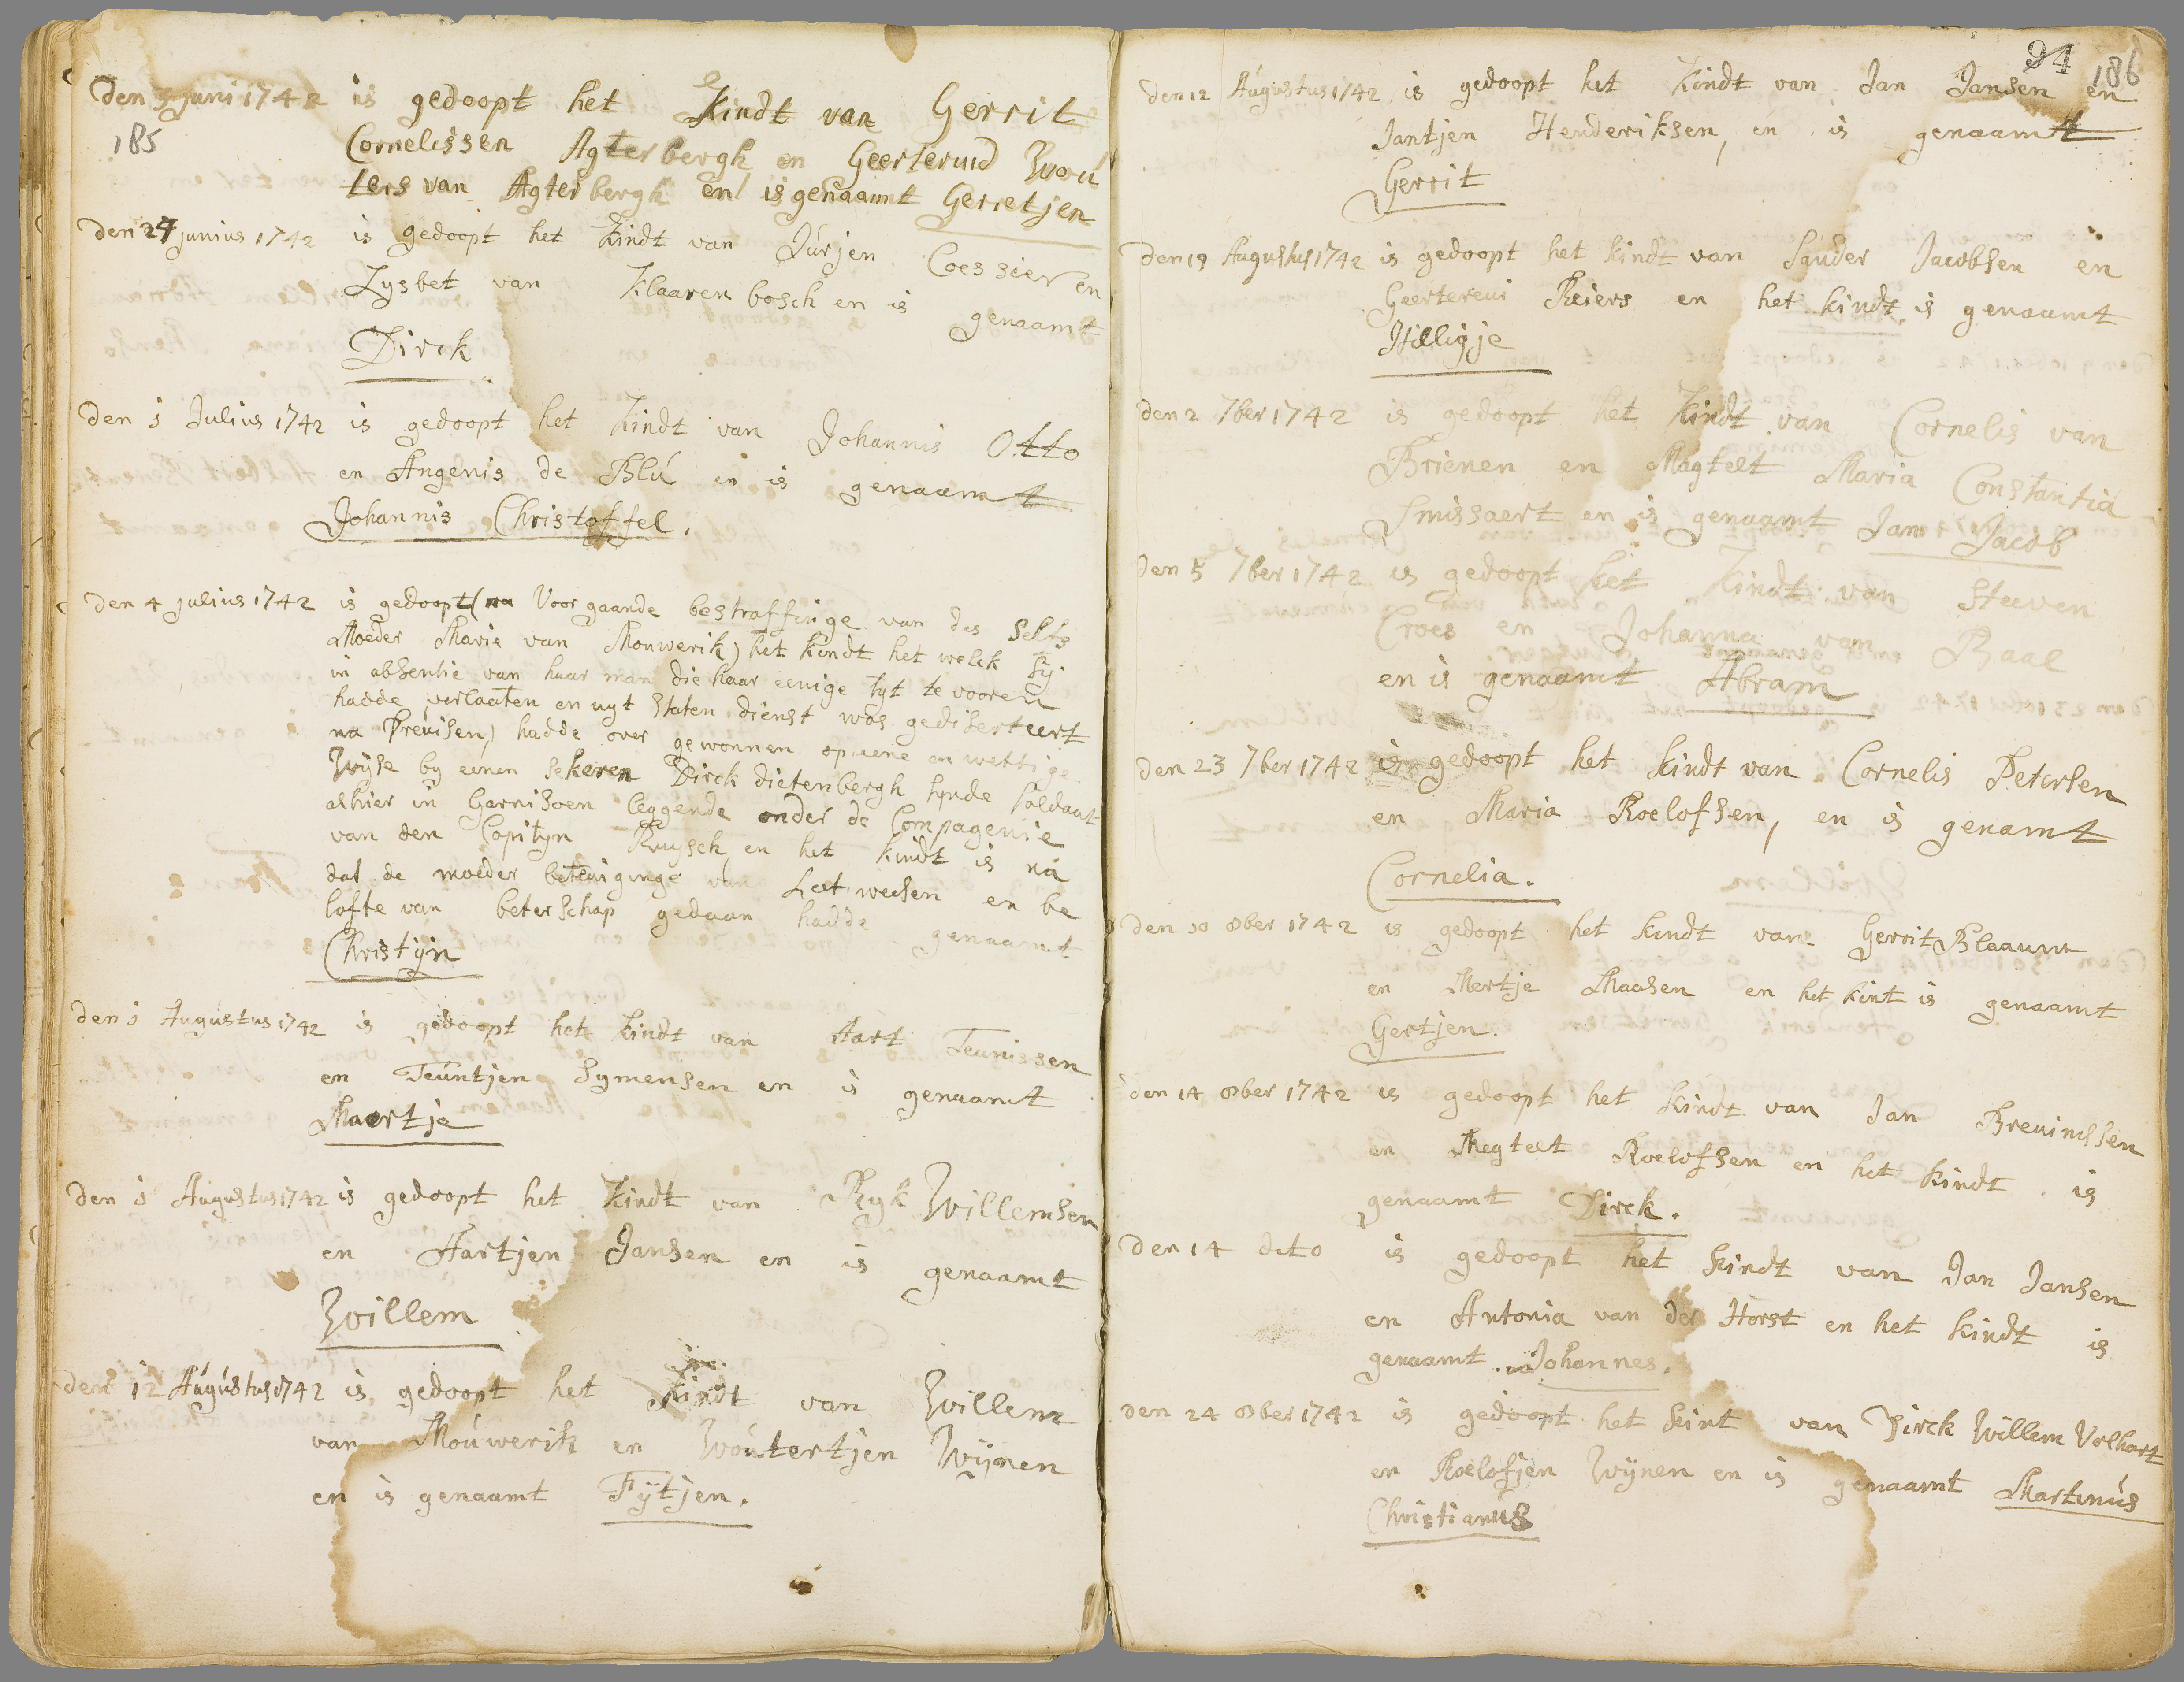 Den 3 juni 1742 is gedoopt het Kindt van Gerrit
185
Cornelissen Agterbergh en Geerteruid Wou
ters van Agterbergh en is genaamt Gerretjen
Den 24 junius 1742 is gedoopt het Kindt van Jurjen Coessier en
Lysbet van Klaarenbosch en is genaamt
Dirck
Den 1 Julius 1742 is gedoopt het Kindt van Johannis Otto
en Angenis de Blú en is genaamt
Johannis Christoffel.
Den 4 julius 1742 is gedoopt (na Voorgaande bestraffinge van des selfs
Moeder Marie van Mouwerik) het kindt het welck sy
in absentie van haar man die haar eenige tyt te vooren
hadde verlaaten en uyt Staten dienst was gediserteert
na Preuisen) hadde over gewonnen op eene onwettige
Wyse by eenen sekeren Dirck dietenbergh synde soldaat
alhier in Garnisoen leggende onder de Compagenie
van den Capityn Ruysch en het kindt is na
dat de moeder beteuiginge van Leetweesen en be
lofte van beterschap gedaan hadde genaamt
Christijn
Den 1 Augustus 1742 is gedoopt het Kindt van Aart Teunissen
en Teuntjen Symensen en is genaamt
Maertje
Den 1 Augustus 1742 is gedoopt het Kindt van Ryk Willemsen
en Aartjen Jansen en is genaamt
Willem
Den 12 Augustus 1742 is gedoopt het Kindt van Willem
van Mouwerik en Woutertjen Wijnen
en is genaamt Fijtjen.
94
186
Den 12 Augustus 1742 is gedoopt het Kindt van Jan Jansen en
Jantjen Henderiksen, en is genaamt
Gerrit
Den 19 Augustus 1742 is gedoopt het kindt van Sander Jacobsen en
Geertereui Reiers en het kindt is genaamt
Hilligje
Den 2 7ber 1742 is gedoopt het Kindt van Cornelis van
Brienen en Magtelt Maria Constantia
Smissaert en is genaamt Jan Jacob
Den 5 7ber 1742 is gedoopt het Kindt van Steeven
Croes en Johanna van Baal
en is genaamt Abram
Den 23 7ber 1742 is gedoopt het kindt van Cornelis Petersen
en Maria Roelofsen, en is genamt
Cornelia.
Den 10 8ber 1742 is gedoopt het kindt van Gerrit Blaauw
en Mertje Maasen en het kint is genaamt
Gertjen.
Den 14 8ber 1742 is gedoopt het kindt van Jan Breunissen
en Megtelt Roelofsen en het kindt is
genaamt Dirck.
Den 14 dito is gedoopt het kindt van Jan Jansen
en Antonia van der Horst en het kindt is
genaamt Johannes.
Den 24 8ber 1742 is gedoopt het kint van Dirck Willem Volhart
en Roelofjen Wijnen en is genaamt Martinús
Christianus